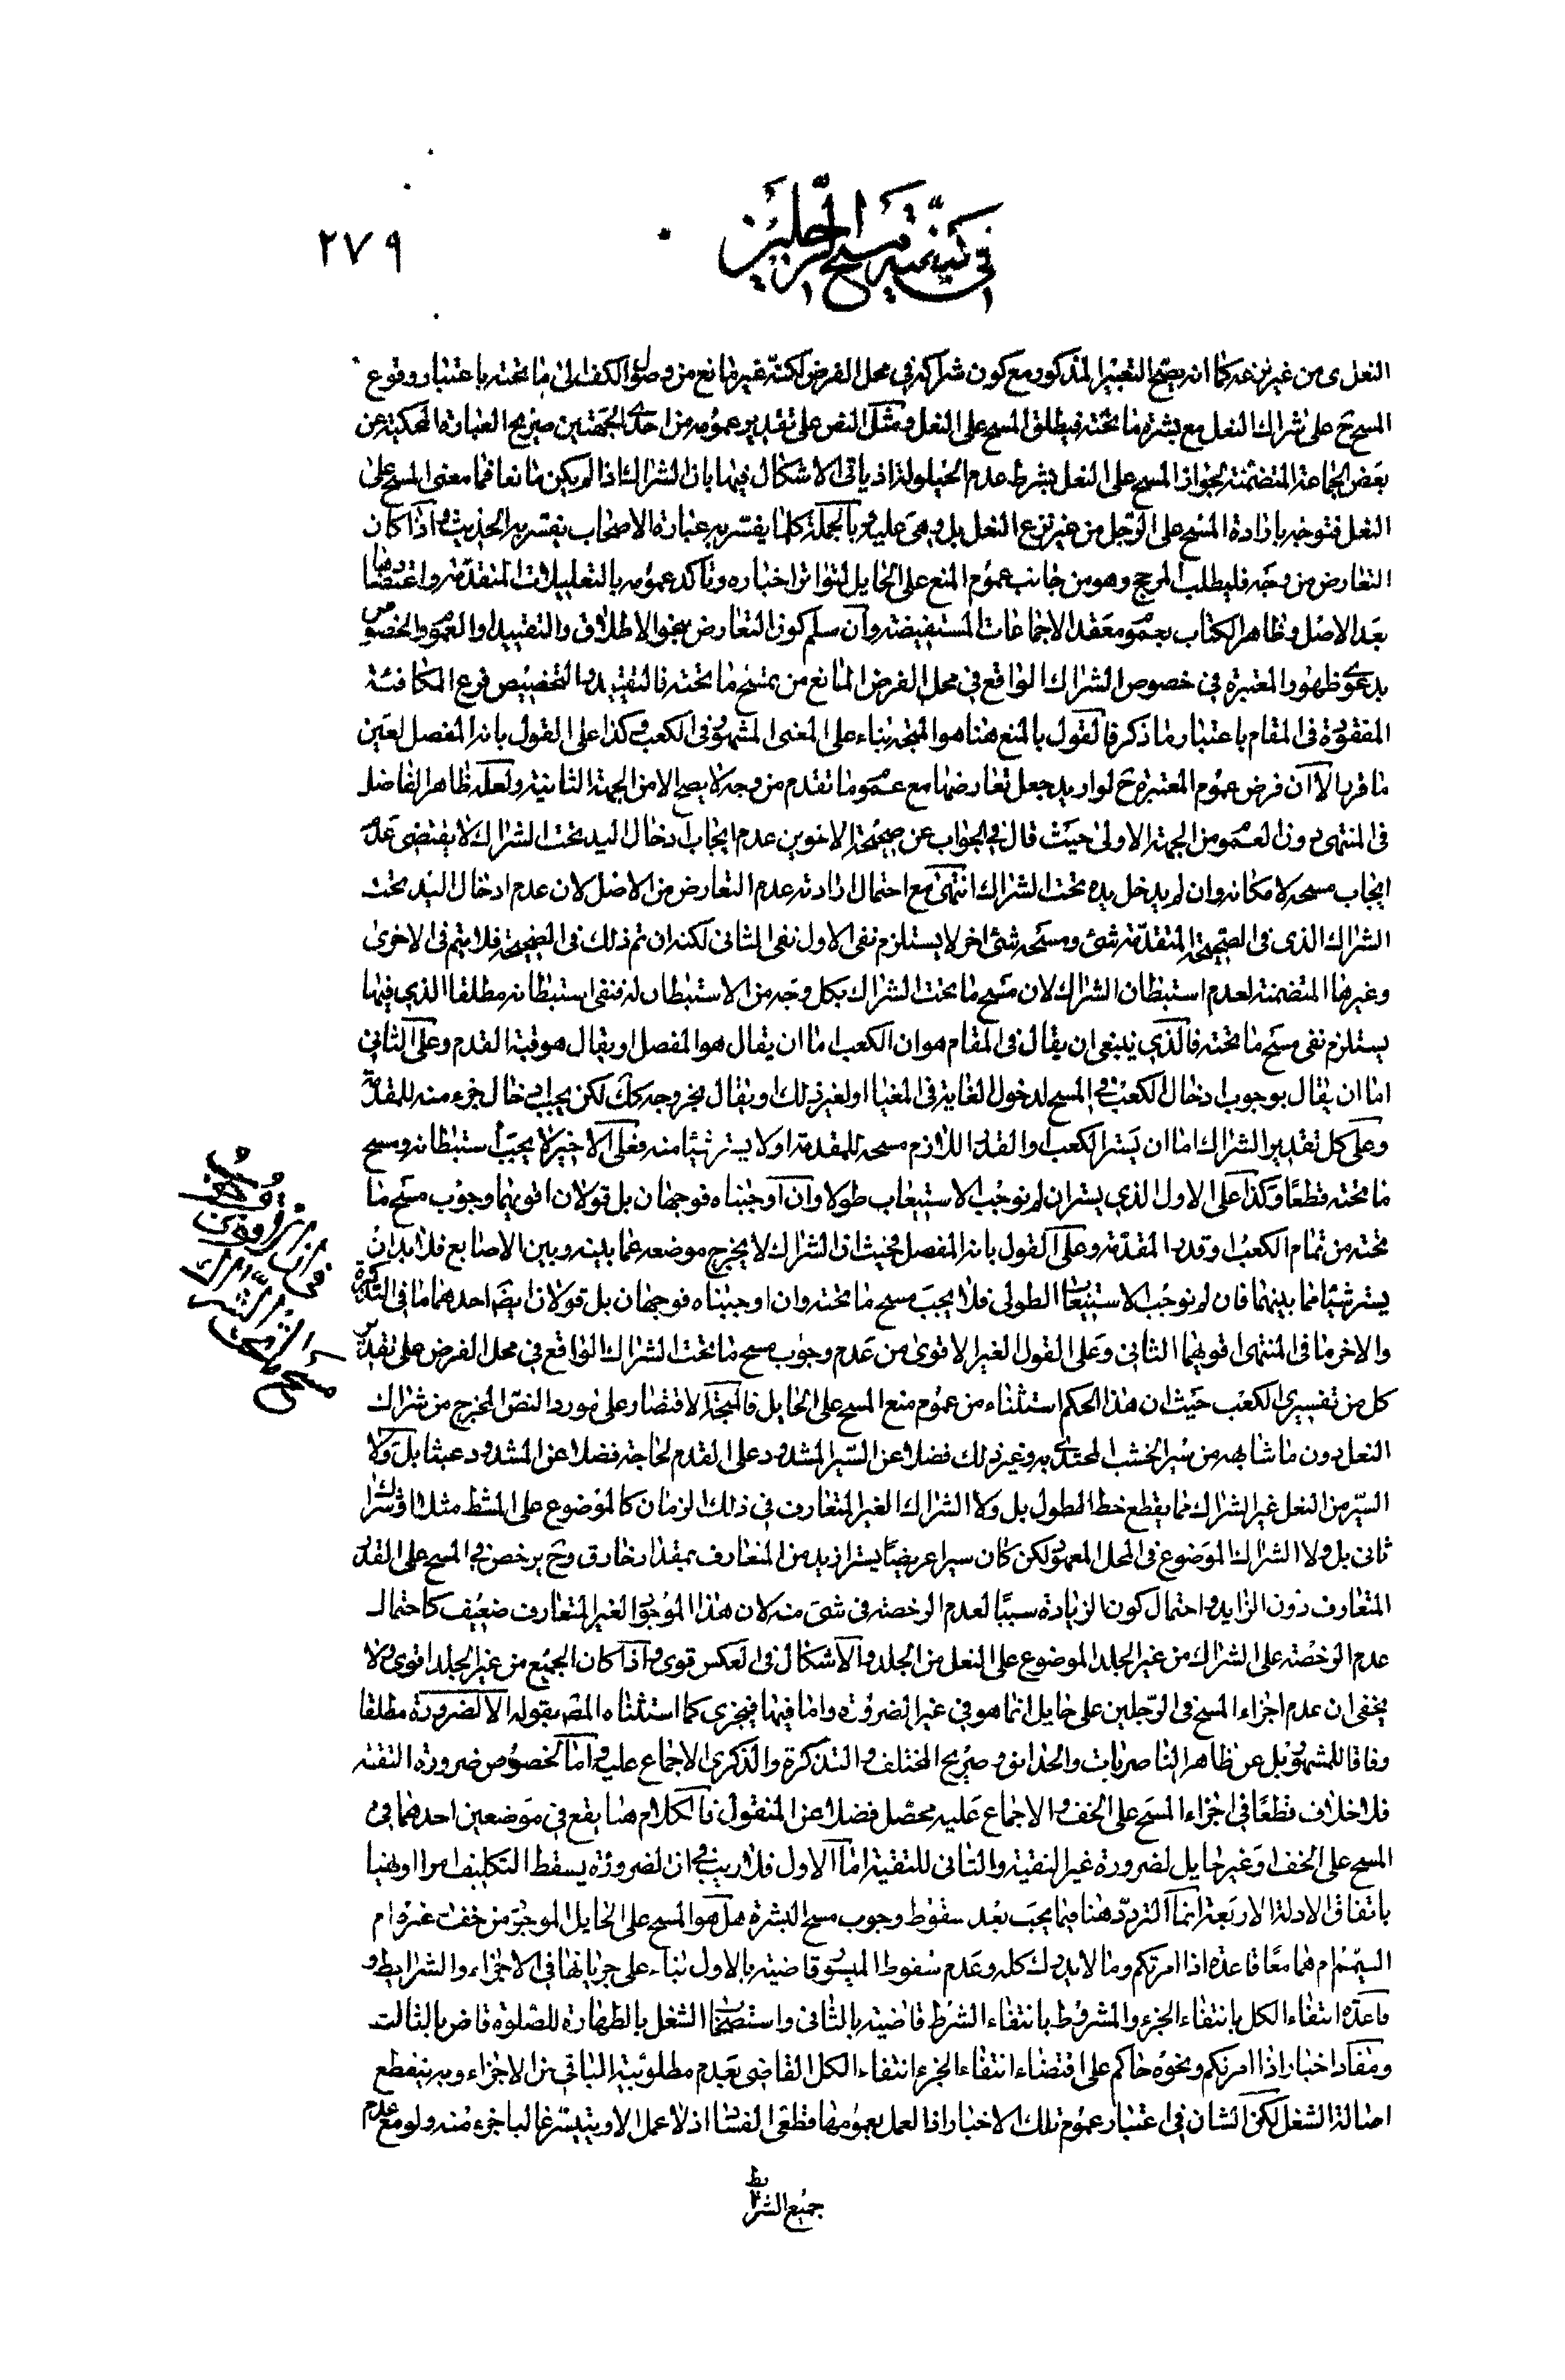 في كيفية مسح الرجلين
٢٧٩
النعل ى من غير نزعه كما انه يصح التعبير المذكور مع كون شراكه في محل الفرض لكنه غير مانع من وصول الكف الى ما تحته باعتبار وقوع
المسح ح على شراك النعل مع بشرة ما تحته فيطلق المسح على النعل ومثل النص على تقدير عمومه من احدى الجهتين صريح العبارة المحكية عن
بعض الجماعة المتضمنة لجواز المسح على النعل بشرط عدم الحيلولة اذ ياتى الاشكال فيها بان الشراك اذا لم يكن مانعا فما معنى المسح على
النعل فتوجه بارادة المسح على الرجل من غير نزع النعل بل وهي عليه وبالجملة كلما يفسر به عبارة الاصحاب يفسر به الحديث واذا كان
التعارض من وجه فليطلب المرجح وهو من جانب عموم المنع على الحايل لتواتر اخباره وتاكد عمومه بالتعليلات المتقدمة واعتضادها
بعد الاصل وظاهر الكتاب بعموم معقد الاجماعات المستفيضة وان سلم كون التعارض بنحو الاطلاق والتقييد او العموم والخصوص
بدعوى ظهور المعتبرة في خصوص الشراك الواقع في محل الفرض المانع من مسح ما تحته فالتقييد والتخصيص فرع المكافئة
المفقودة في المقام باعتبار ما ذكر فالقول بالمنع هنا هو المتجه بناء على المعنى المشهور في الكعب وكذا على القول بانه المفصل لعين
ما قر الا ان فرض عموم المعتبرة ح لو اريد جعل تعارضها مع عموم ما تقدم من وجه لا يصح الا من الجهة الثانية ولعله ظاهر الفاضل
في المنتهى دون العموم من الجهة الاولى حيث قال في الجواب عن صحيحة الاخوين عدم ايجاب ادخال اليد تحت الشراك لا يقتضى عدم
ايجاب مسحه لامكانه وان لم يدخل يده تحت الشراك انتهى مع احتمال ارادته عدم التعارض من الاصل لان عدم ادخال اليد تحت
الشراك الذى في الصحيحة المتقدمة شئ ومسحه شئ اخر لا يستلزم نفى الاول نفى الثانى لكنه ان تم ذلك في الصحيحة فلا يتم في الاخرى
وغيرها المتضمنة لعدم استبطان الشراك لان مسح ما تحت الشراك بكل وجه من الاستبطان له فنفى استبطانه مطلقا الذي فيها
يستلزم نفى مسح ما تحته فالذي ينبغى ان يقال في المقام هو ان الكعب اما ان يقال هو المفصل او يقال هو قبة القدم وعلى الثانى
اما ان يقال بوجوب ادخال الكعب في المسح لدخول الغاية في المغيا او لغير ذلك او يقال بخروجه كك لكن يجب ادخال جزء منه للمقدمة
وعلى كل تقدير الشراك اما ان يستر الكعب او القدر اللازم مسحه للمقدمة او لا يستر شيئا منه فعلى الاخير لا يجب استبطانه ومسح
ما تحته قطعا وكذا على الاول الذي يستر ان لم نوجب الاستيعاب طولا وان اوجبناه فوجهان بل قولان اقويهما وجوب مسح ما
تحته من تمام الكعب او قدر المقدمة وعلى القول بانه المفصل فحيث ان الشراك لا يخرج موضعه عما بينه وبين الاصابع فلا بد ان
يستر شيئا مما بينهما فان لم نوجب الاستيعاب الطولى فلا يجب مسح ما تحته وان اوجبناه فوجهان بل قولان ايضا احدهما ما في التذكرة
والاخر ما في المنتهى اقويهما الثانى وعلى القول الغير الاقوى من عدم وجوب مسح ما تحت الشراك الواقع في محل الفرض على تقدير
كل من تفسيرى الكعب حيث ان هذا الحكم استثناء من عموم منع المسح على الحايل فالمتجه الاقتصار على مورد النص المخرج من شراك
النعل دون ما شابهه من سير الخشب المحتذى به وغير ذلك فضلا عن السير المشدود على القدم لحاجة فضلا عن المشدود عبثا بل ولا
السير من النعل غير الشراك مما يقطع خط الطول بل ولا الشراك الغير المتعارف في ذلك الزمان كالموضوع على المشط مثلا او شراك
ثانى بل ولا الشراك الموضوع في المحل المعهود لكن كان سيرا عريضا يستر ازيد من المتعارف بمقدار خارق وح يرخص في المسح على القدر
المتعارف دون الزايد واحتمال كون الزيادة سببا لعدم الرخصة في شئ منه لان هذا الموجود الغير المتعارف ضعيف كاحتمال
عدم الرخصة على الشراك من غير الجلد الموضوع على النعل من الجلد والاشكال في العكس قوى واذا كان الجميع من غير الجلد اقوى ولا
يخفى ان عدم اجزاء المسح في الرجلين على حايل انما هو في غير الضرورة واما فيها فيجزى كما استثناه المص بقوله الا لضرورة مطلقا
وفاقا للمشهور بل عن ظاهر الناصريات والحدائق وصريح المختلف والتذكرة والذكرى الاجماع عليه واما لخصوص ضرورة التقية
فلا خلاف قطعا في اجزاء المسح على الخف والاجماع عليه محصل فضلا عن المنقول فالكلام هنا يقع في موضعين احدهما في
المسح على الخف او غير حايل لضرورة غير التقية والثانى للتقية اما الاول فلا ريب في ان الضرورة يسقط التكليف امرا او نهيا
باتفاق الادلة الاربعة انما التردد هنا فيما يجب بعد سقوط وجوب مسح البشرة هل هو المسح على الحايل الموجود من خف او غيره ام
التيمم ام هما معا قاعدة اذا امرتكم وما لا يدرك كله وعدم سقوط الميسور قاضية بالاول بناء على جريانها في الاجزاء والشرايط و
قاعدة انتفاء الكل بانتفاء الجزء والمشروط بانتفاء الشرط قاضية بالثانى واستصحاب الشغل بالطهارة للصلوة قاض بالثالث
ومفاد اخبار اذا امرتكم ونحوه حاكم على اقتضاء انتفاء الجزء انتفاء الكل القاضى بعدم مطلوبية الباقى من الاجزاء وبه ينقطع
اصالة الشغل لكن الشان في اعتبار عموم تلك الاخبار اذ العمل بعمومها قطعى الفساد اذ لا عمل الا ويتيسر غالبا جزء منه ولو مع عدم
جميع الشرايط